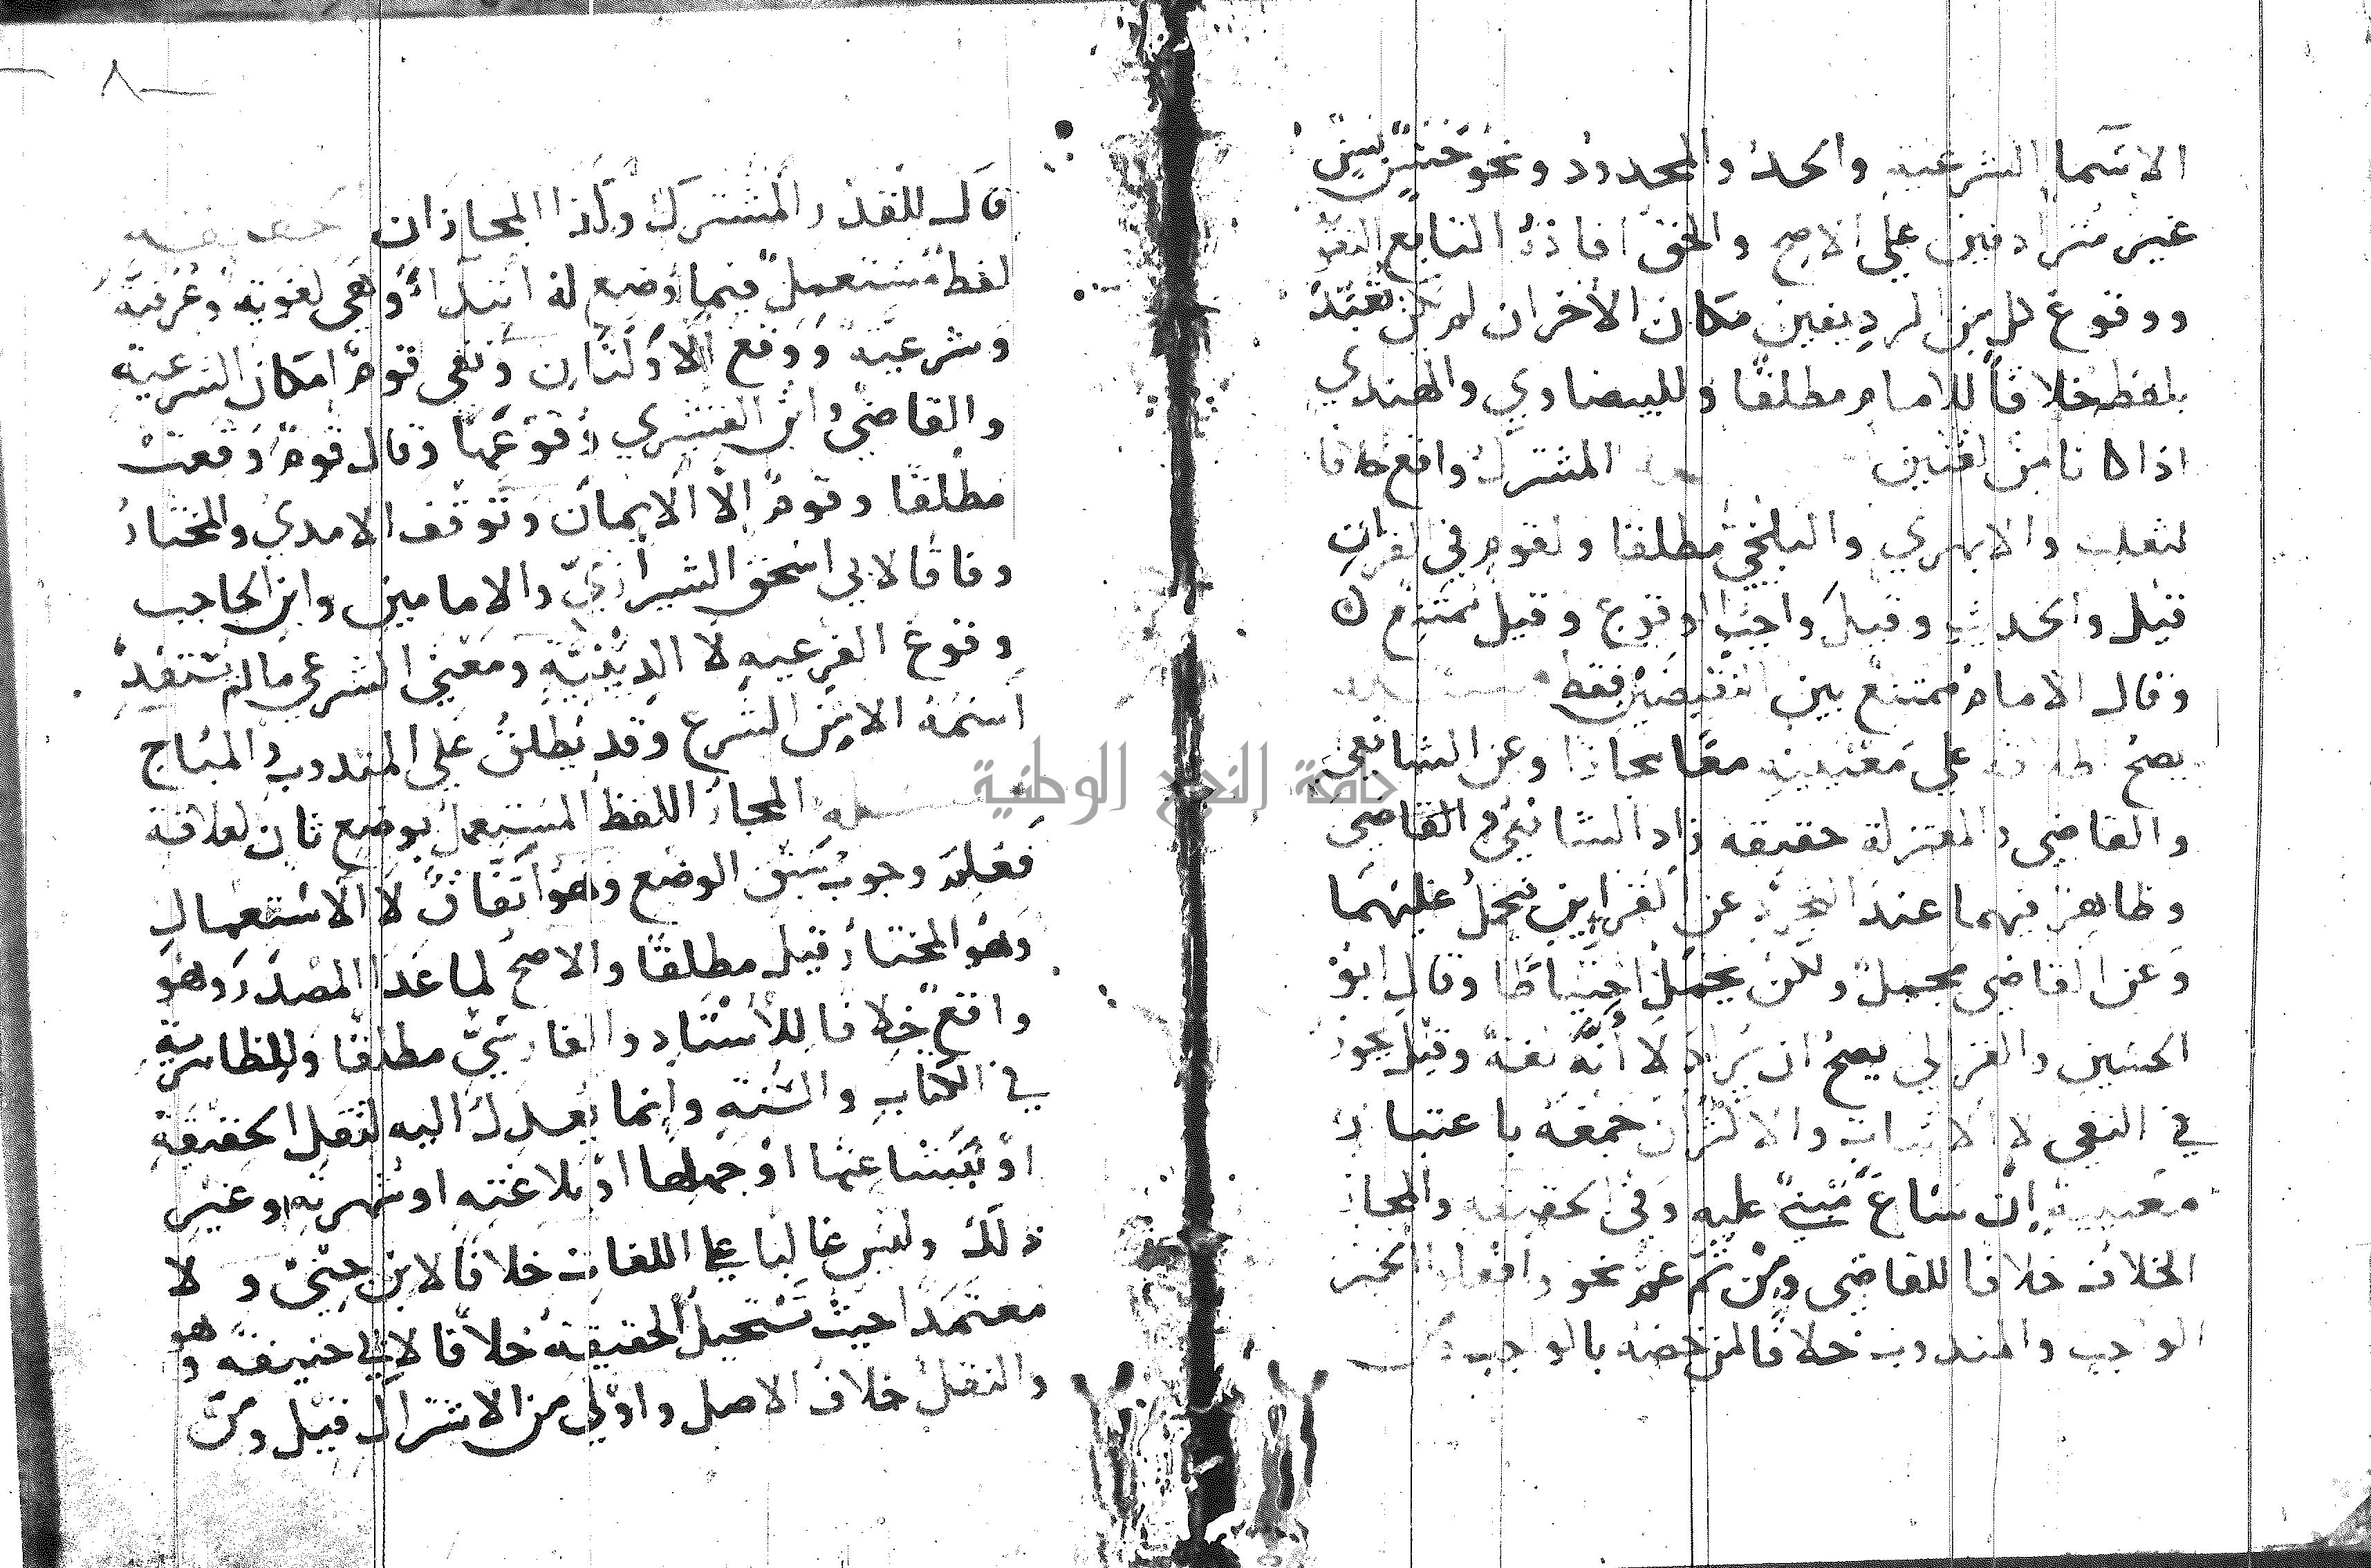 الاسما الشرعية والحد والمحدود ونحو حسن بسن
غير مترادفين على الاصح والحق افادة التابع التقو
ووقوع كل من الرديفين مكان الاخر ان لم يكن تعبد
بلفظه خلافا للامام مطلقا وللبيضاوي والهندي
اذا كانا من لغتين المشترك واقع خلافا
لثعلب والابهري والبلخي مطلقا ولقوم في القران
قيل والحديث وقيل واجب الوقوع وقيل ممتنع
وقال الامام ممتنع بين النقيضين فقط مسئله
يصح اطلاقه على معنييه معا مجازا وعن الشافعي
والقاضي والمعتزلة حقيقه زاد الشافعي والقاضي
وظاهر فيهما عند التجرد عن القراين فيحمل عليهما
وعن القاضي مجمل ولكن يحمل احتياطا وقال ابو
الحسين والغزالي يصح ان يراد لا أنه لغة وقيل يجوز
في النفي لا الاثبات والاكثر ان جمعه باعتبار
معنييه إن ساغ مبني عليه وفي الحقيقه والمجاز
الخلاف خلافا للقاضي ومن ثم عم نحو وافعلوا الخير
الواجب والمندوب خلافا لمن خصه بالواجب ومن
قال للقدر المشترك وكذا المجازان الحقيقه
لفظ مستعمل فيما وضع له ابتداء وهي لغوية وعرفية
وشرعية ووقع الاولتان ونفى قوم امكان الشرعية
والقاضي وابن القشيري وقوعها وقال قوم وقعت
مطلقا وقوم إلا الايمان وتوقف الامدي والمختار
وفاقا لابي اسحق الشيرازي والامامين وابن الحاجب
وقوع الفرعيه لا الدينية ومعنى الشرعي ما لم يستفد
اسمه الا من الشرع وقد يطلق على المندوب والمباح
مسئله المجاز اللفظ المستعمل بوضع ثان لعلاقة
فعلم وجوب سبق الوضع وهو اتفاق لا الاستعمال
وهو المختار قيل مطلقا والاصح لما عدا المصدر وهو
واقع خلافا للأستاد والفارسي مطلقا وللظاهرية
في الكتاب والسنة وإنما يعدل اليه لثقل الحقيقة
او بشاعتها او جهلها او بلاغته او شهرته او غير
ذلك وليس غالبا على اللغات خلافا لابن جني ولا
معتمدا حيث تستحيل الحقيقة خلافا لابي حنيفة وهو
والنقل خلاف الاصل واولى من الاشتراك قيل ومن
جامعة الوطنية